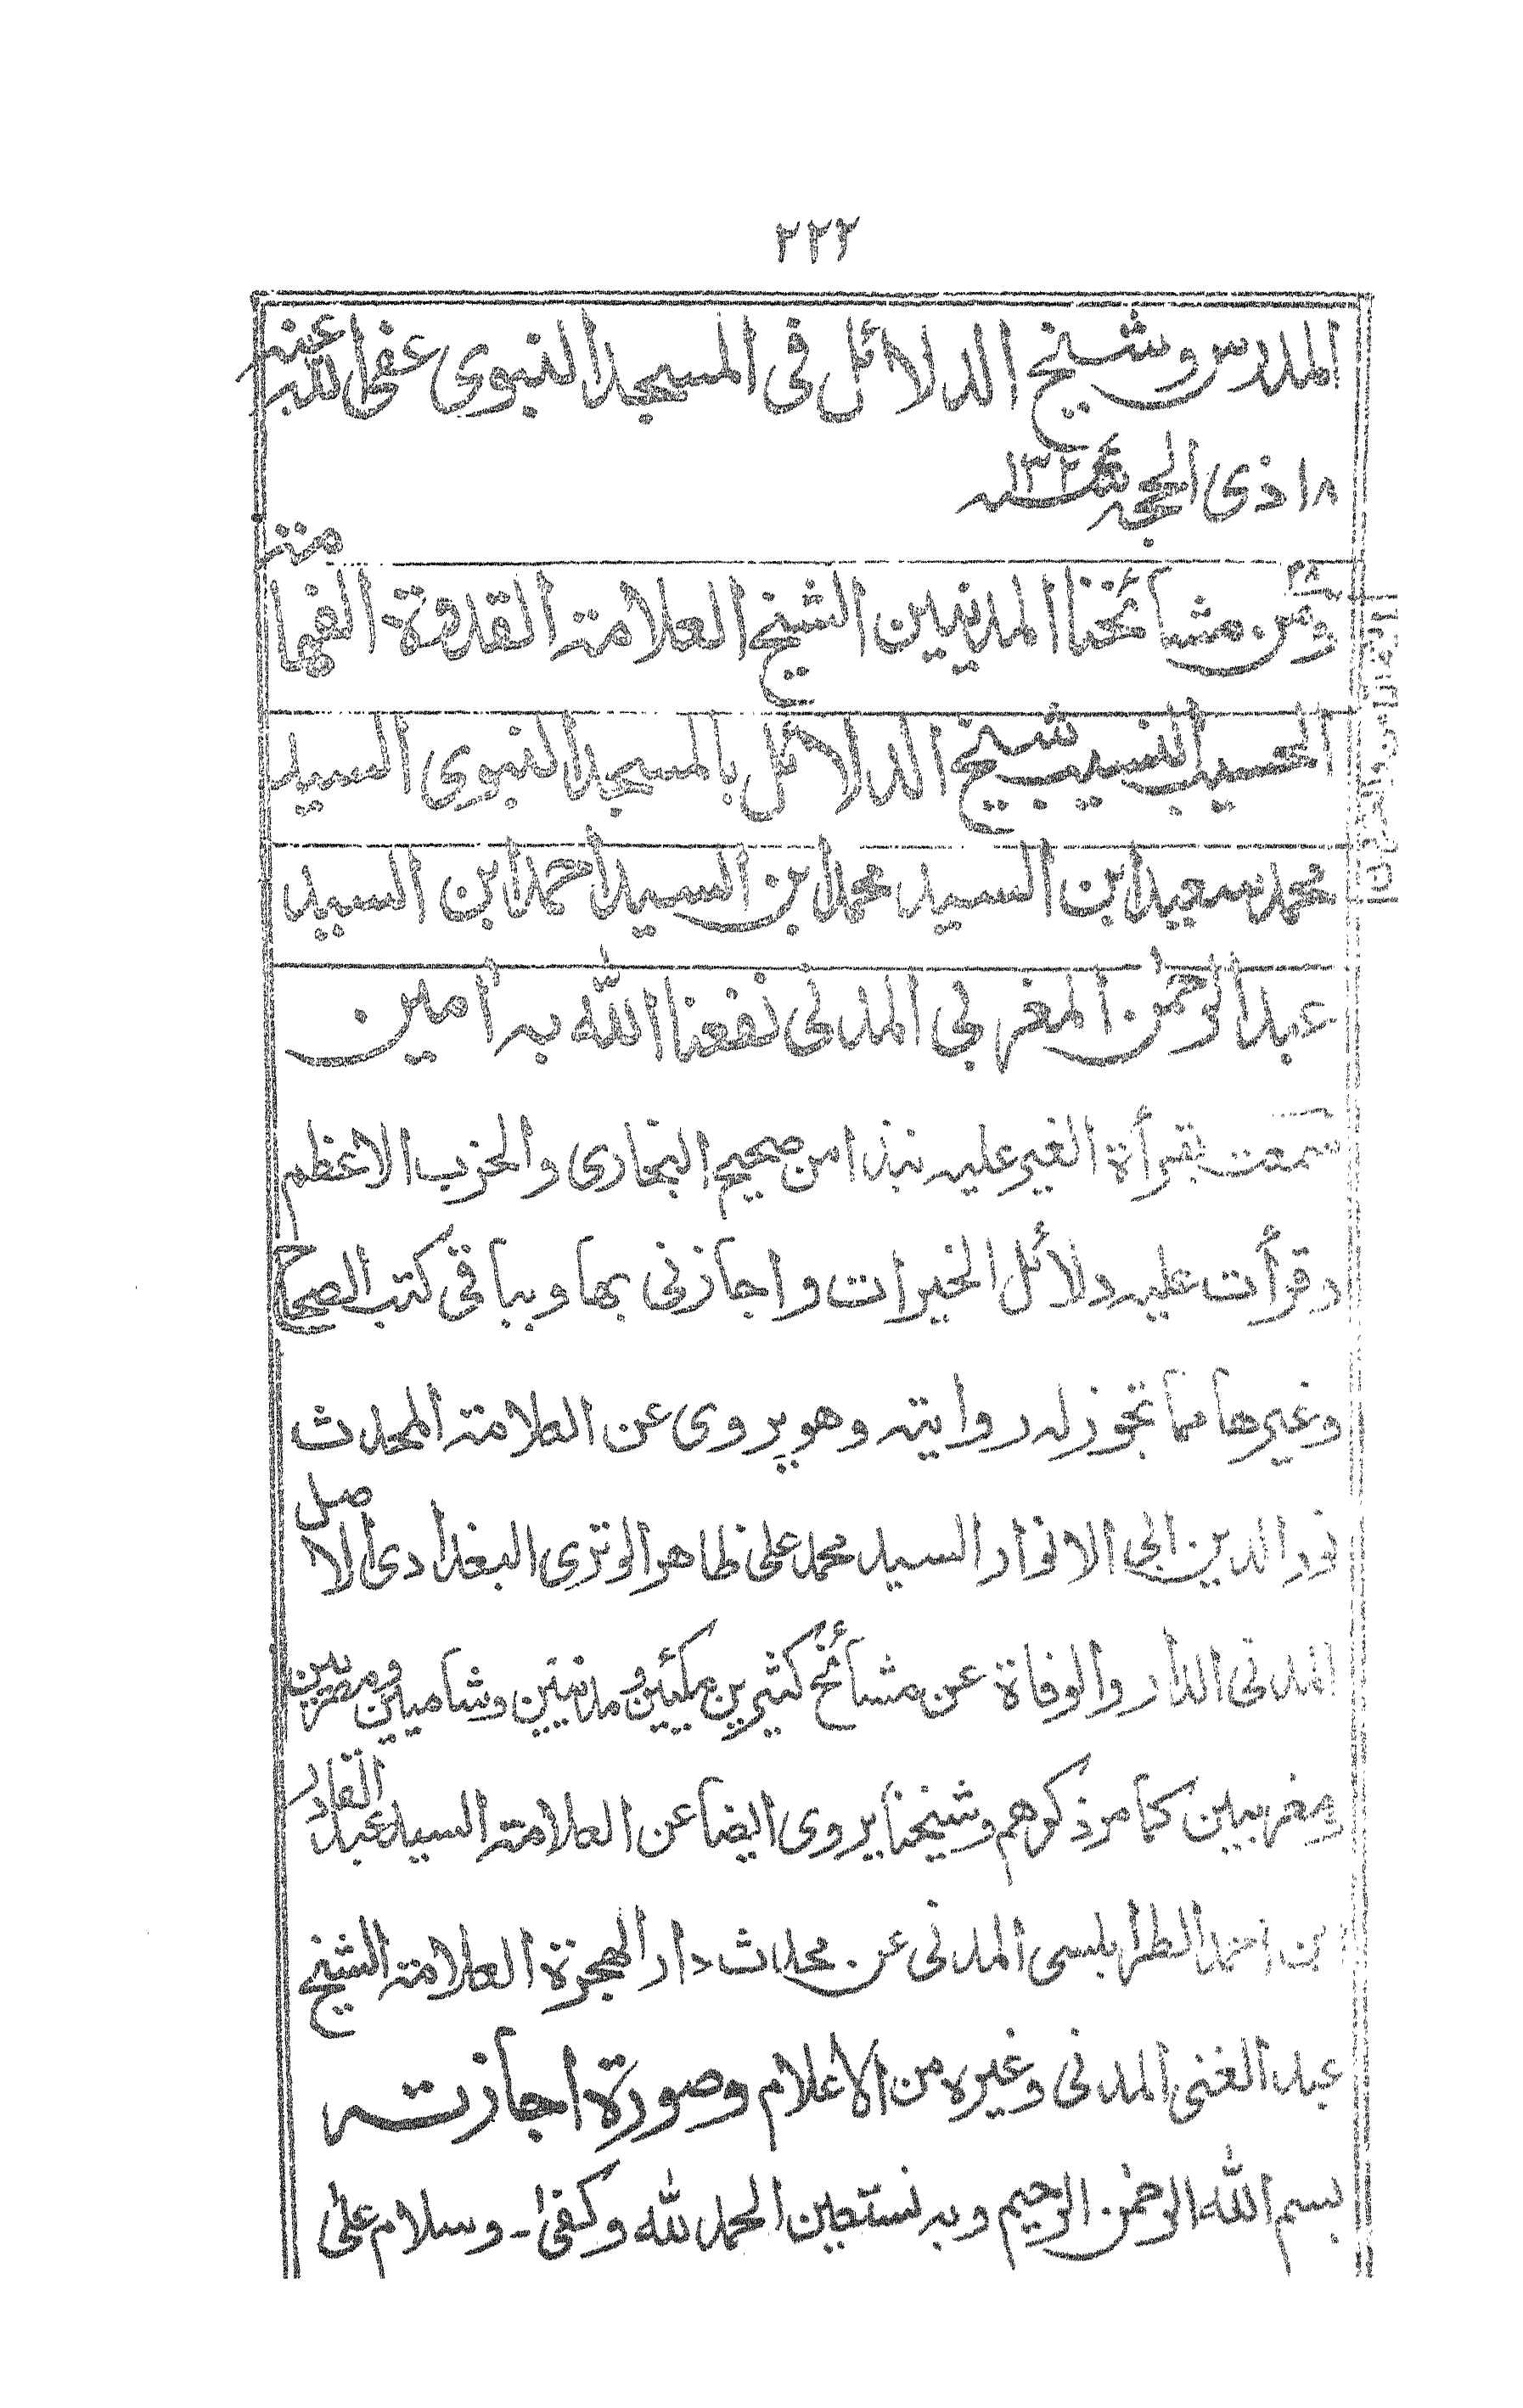 ٢٢٢
المدرس وشيخ الدلائل فی المسجد النبوی عفی الله عنه
١٨ ذی الحجه سنه
٣٨
ومن مشائخنا المدنيين الشيخ العلامة القدوة الفهامة
الحسيب النسيب شيخ الدلائل بالمسجد النبوی السيد
محمد سعيد ابن السيد محمد ابن السيد احمد ابن السيد
عبد الرحمٰن المغربی المدنی نفعنا الله به أمين
سمعت بقرأة الغير عليه نبذا من صحيح البخاری والحزب الاعظم
وقرأت عليه دلائل الخيرات واجازنی بها وبباقی كتب الصحاح
وغيرها مما تجوز له روايته وهو يروی عن العلامة المحدث
نور الدين ابی الانوار السيد محمد علی ظاهر الوتری البغدادی الاصل
المدنی الدار والوفاة عن مشائخ كثيرين مكيين ومدنيين وشاميين ومصريين
ومغربيين كما مر ذكرهم وشيخنا يروی ايضا عن العلامة السيد عبد القادر
بن احمد الطرابلسی المدنی عن محدث دار الهجرة العلامة الشيخ
عبد الغنی المدنی وغيره من الاعلام وصورة اجازته
بسم الله الرحمٰن الرحيم وبه نستعين الحمد لله وكفیٰ - وسلام علیٰ